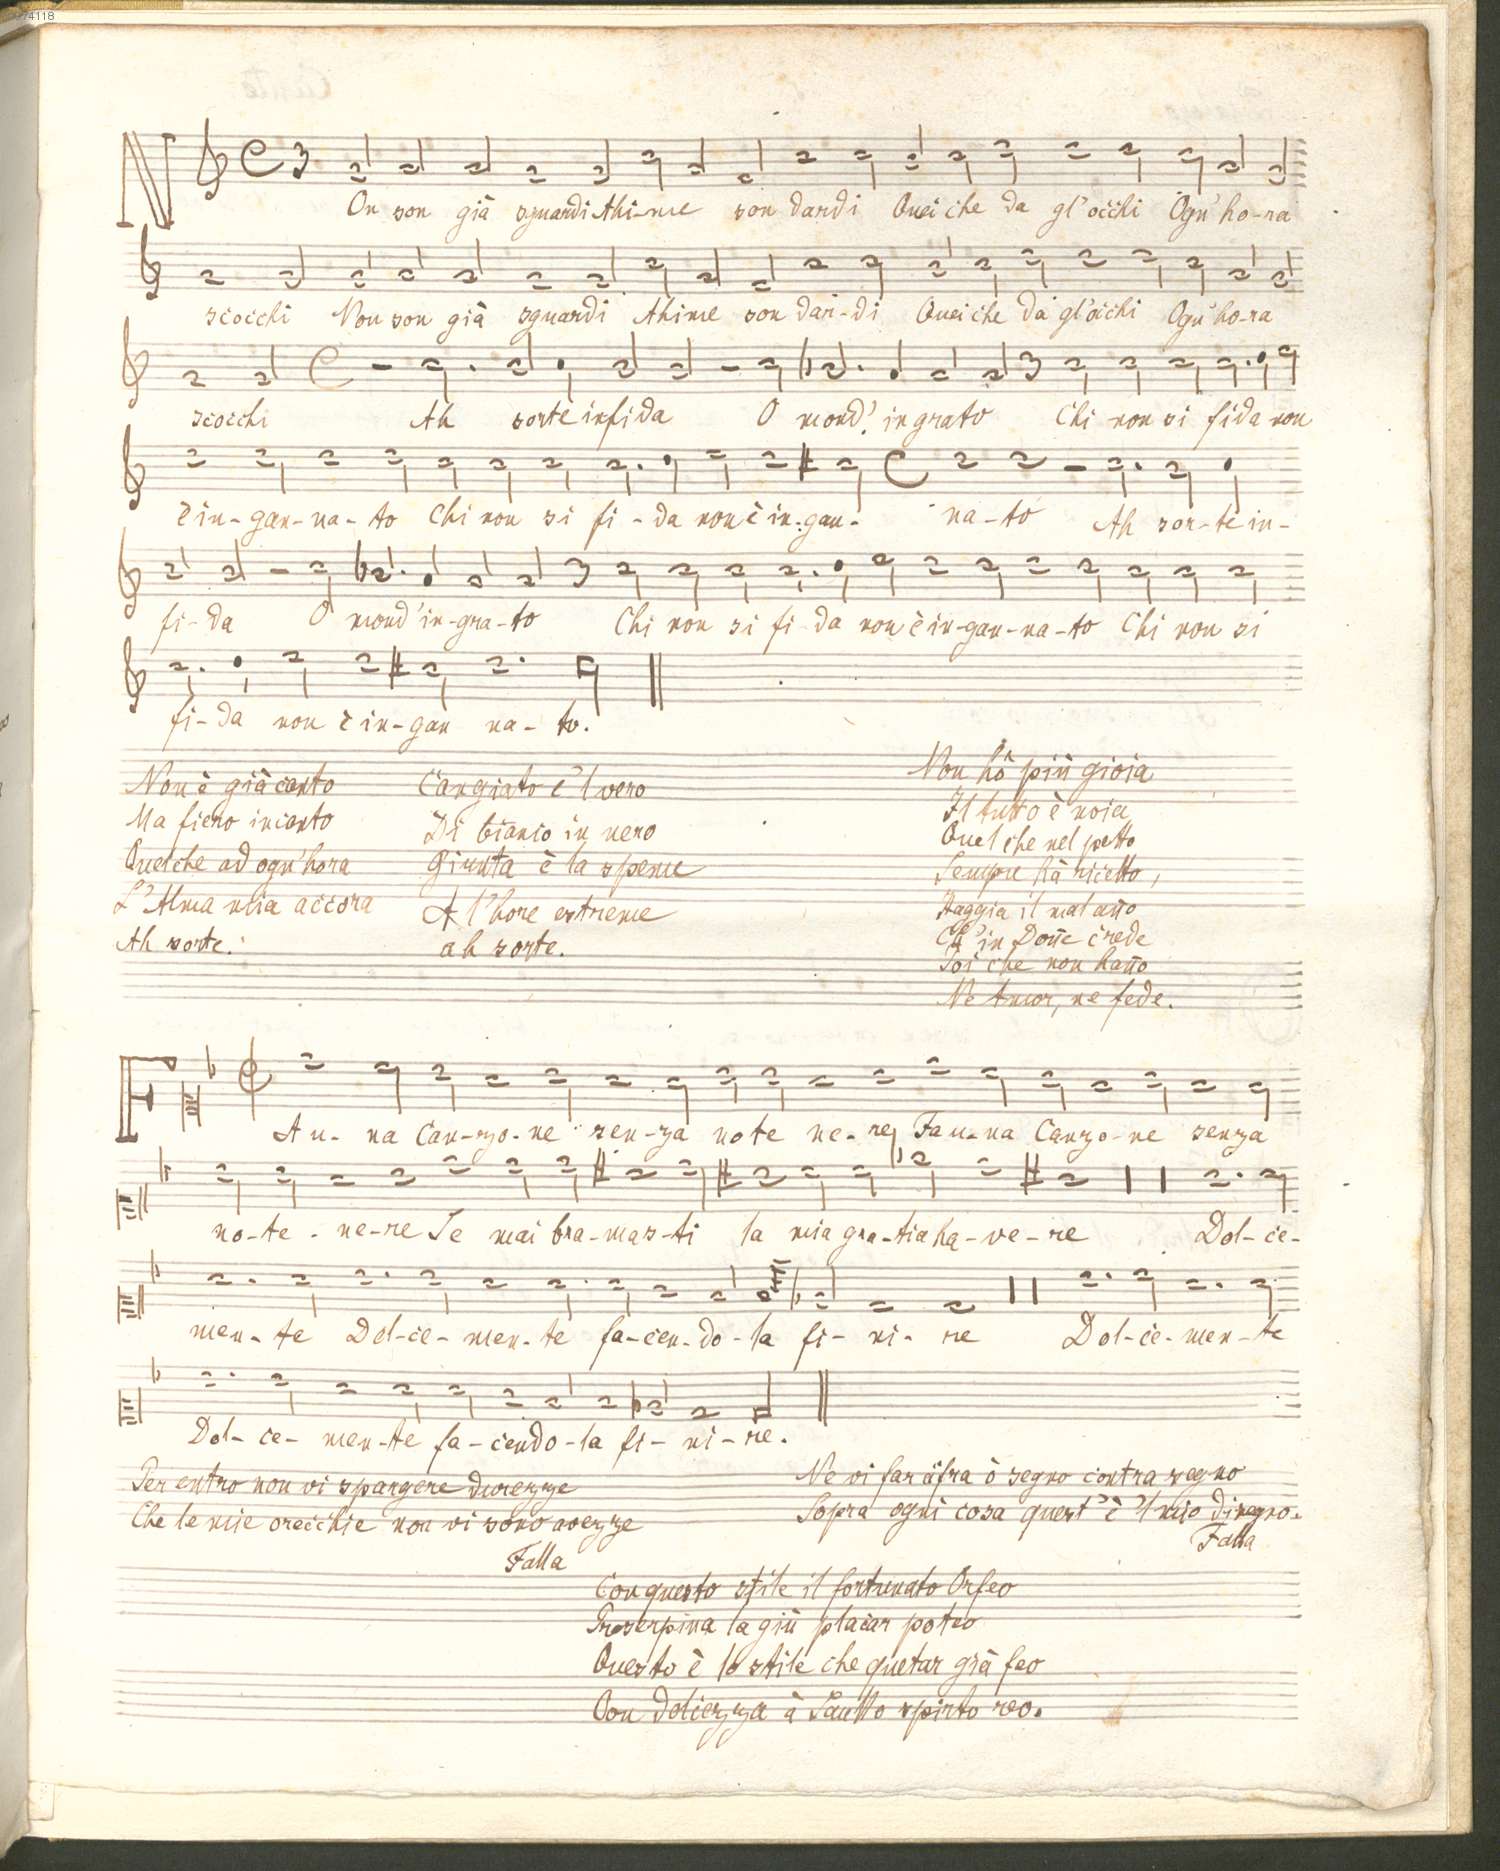 74118
NOn son già sguardi Ahi-me son dardi Quei che da gl'occhi Ogn'ho-ra
scocchi Non son già sguardi Ahime son dar-di Quei che da gl'occhi Ogn'ho-ra
scocchi Ah sorte infida O mond' ingrato Chi non si fida non
è in-gan-na-to Chi non si fi-da non è in-gan- na-to Ah sor-te in-
fi-da O mond'in-gra-to Chi non si fi-da non è in-gan-na-to Chi non si
fi-da non è in-gan na-to.
Non è già canto
Ma fiero incanto
Quel che ad ogn'hora
L'Alma mia accora
Ah sorte.
Cangiato è'l vero
Di bianco in nero
Giunta è la speme
A l'hore estreme
ah sorte.
Non hò più gioia
Il tutto è noia
Quel che nel petto
Sempre hà ricetto,
Haggia il malaño
Ch'in Doñe crede
Poi che non haño
Ne Amor, ne fede.
FA u-na Can-zo-ne sen-za note ne-re Fa u-na Canzo-ne senza
no-te ne-re Se mai bra-mas-ti la mia gra-tia ha-ve-re Dol-ce-
men-te Dol-ce-men-te fa-cen-do-la fi-ni-re Dol-ce-men-te
Dol-ce-men-te fa-cendo-la fi-ni-re.
Per entro non vi spargere durezze
Che le mie orecchie non vi sono avezze
Falla
Ne vi far cifra ò segno contra segno
Sopra ogni cosa quest'è'l mio disegno.
Falla
Con questo stile il fortunato Orfeo
Proserpina la giù placar poteo
Questo è lo stile che quetar già feo
Con dolcezza à Saullo spirto reo.